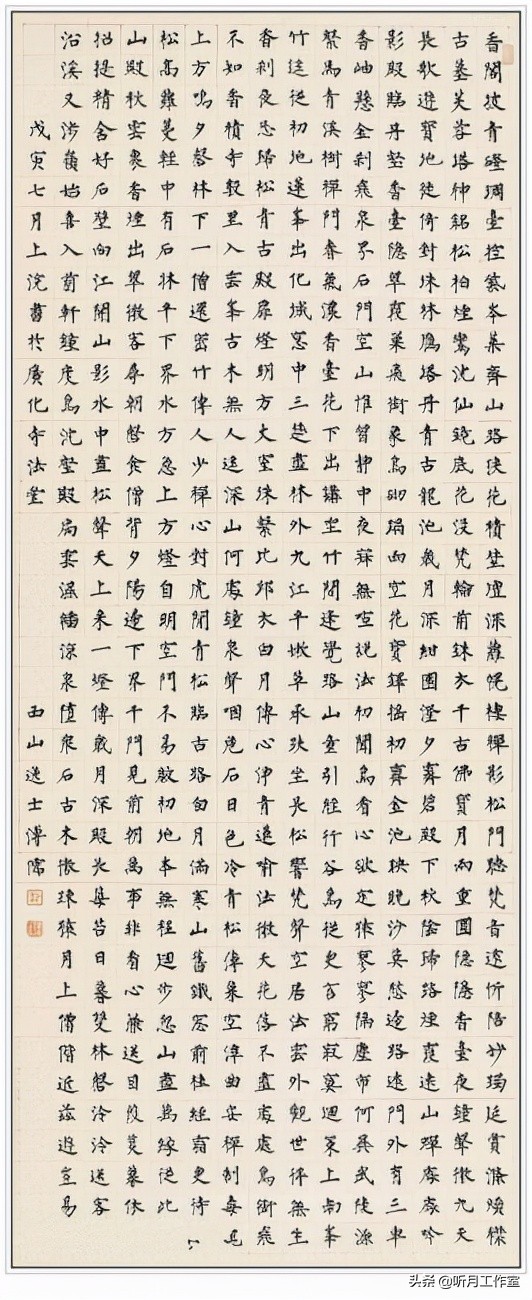 香閣披青磴琱臺控紫岑葉齊山路狹花積埜壇深蘿幌棲禪影松門聽梵音遽忻陪妙躅延賞滌煩襟
古墓芙蓉塔神銘松柏煙鸞沈仙鏡底花沒梵輪前銖衣千古佛寶月兩重圓隱隱香臺夜鐘聲徹九天
長歌遊寶地徙倚對珠林鴈塔丹青古龍池歲月深紺園澄夕霽碧殿下秋陰歸路煙霞遠山蟬處處吟
影殿臨丹壑香臺隱翠霞巢飛銜象鳥砌蹋雨空花寶鐸搖初霽金池映晚沙莫愁途路遠門外有三車
香岫懸金剎飛泉界石門空山惟習靜中夜寂無喧說法初聞鳥看心欲定猿寥寥隔塵市何異武陵源
繫馬青溪樹禪門春氣濃香臺花下出講坐竹間逢覺路山童引經行谷鳥從更言窮寂寞迴策上南峯
竹逕從初地蓮峯出化城窓中三楚盡林外九江平嫩草承趺坐長松響梵聲空居法雲外觀世得無生
香剎夜忘歸松青古殿扉燈明方丈室珠繫比邱衣白月傳心淨青蓮喻法微天花落不盡處處鳥銜飛
不知香積寺數里入雲峯古木無人逕深山何處鐘泉聲咽危石日色冷青松薄暮空潭曲安禪制毒龍
上方鳴夕磬林下一僧還密竹傳人少禪心對虎閒青松臨古路白月滿寒山舊識窓前桂經霜更待
松高蘿蔓輕中有石牀平下界水方急上方燈自明空門不易啟初地本無程迴步忽山盡萬緣從此
山殿秋雲裏香煙出翠微客尋朝磬食僧背夕陽歸下界千門見前朝萬事非看心兼送目葭菼暮依
招提精舍好石壁向江開山影水中盡松聲天上來一燈傳歲月深殿長莓苔日暮雙林磬泠泠送客
沿溪又涉嶺始喜入前軒鐘度鳥沈壑殿扃雲濕幡涼泉墮衆石古木徹疎猿月上僧階近茲遊豈易
戊寅七月上浣書於廣化寺法堂
西山逸士溥儒
头条 @听月工作室